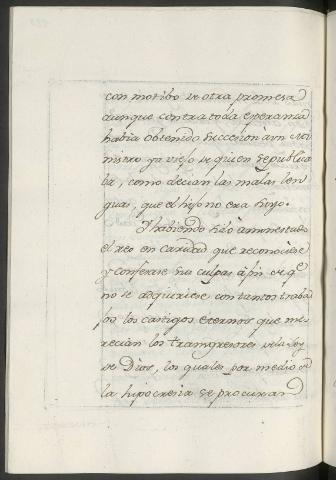 con motibo de otra promesa
aunque contra toda esperanza
habia obtenido succesion à un
nistro ya viejo de quien se publica
ba, como decian las malas len
guas, que el hijo no era suyo.
Y habiendo sido amonestado
el reo en caridad que reconociese
y confesase sus culpas à fin de qe
no se adquiriese con tantos traba
jos los castigos eternos que me-
recian los transgresores de la Ley
de Dios, los quales por medio de
la hipocresia se procuran